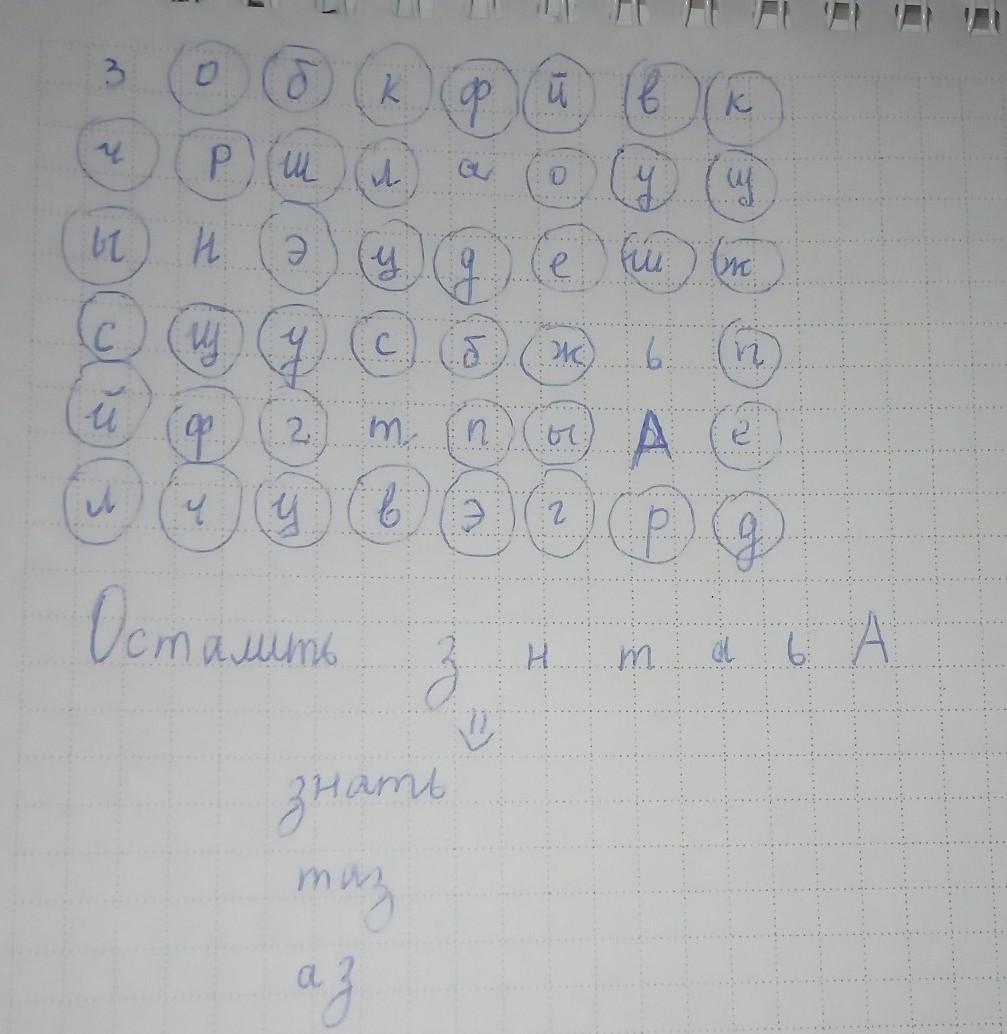 з о б к ф й в к
ч р ш л а о у щ
ы н э ц д е ш ж
с щ у с б ж ь п
й ф г т п ы А е
л ч ц в э г р д
Осталить з н т а ь А
знать
таз
аз